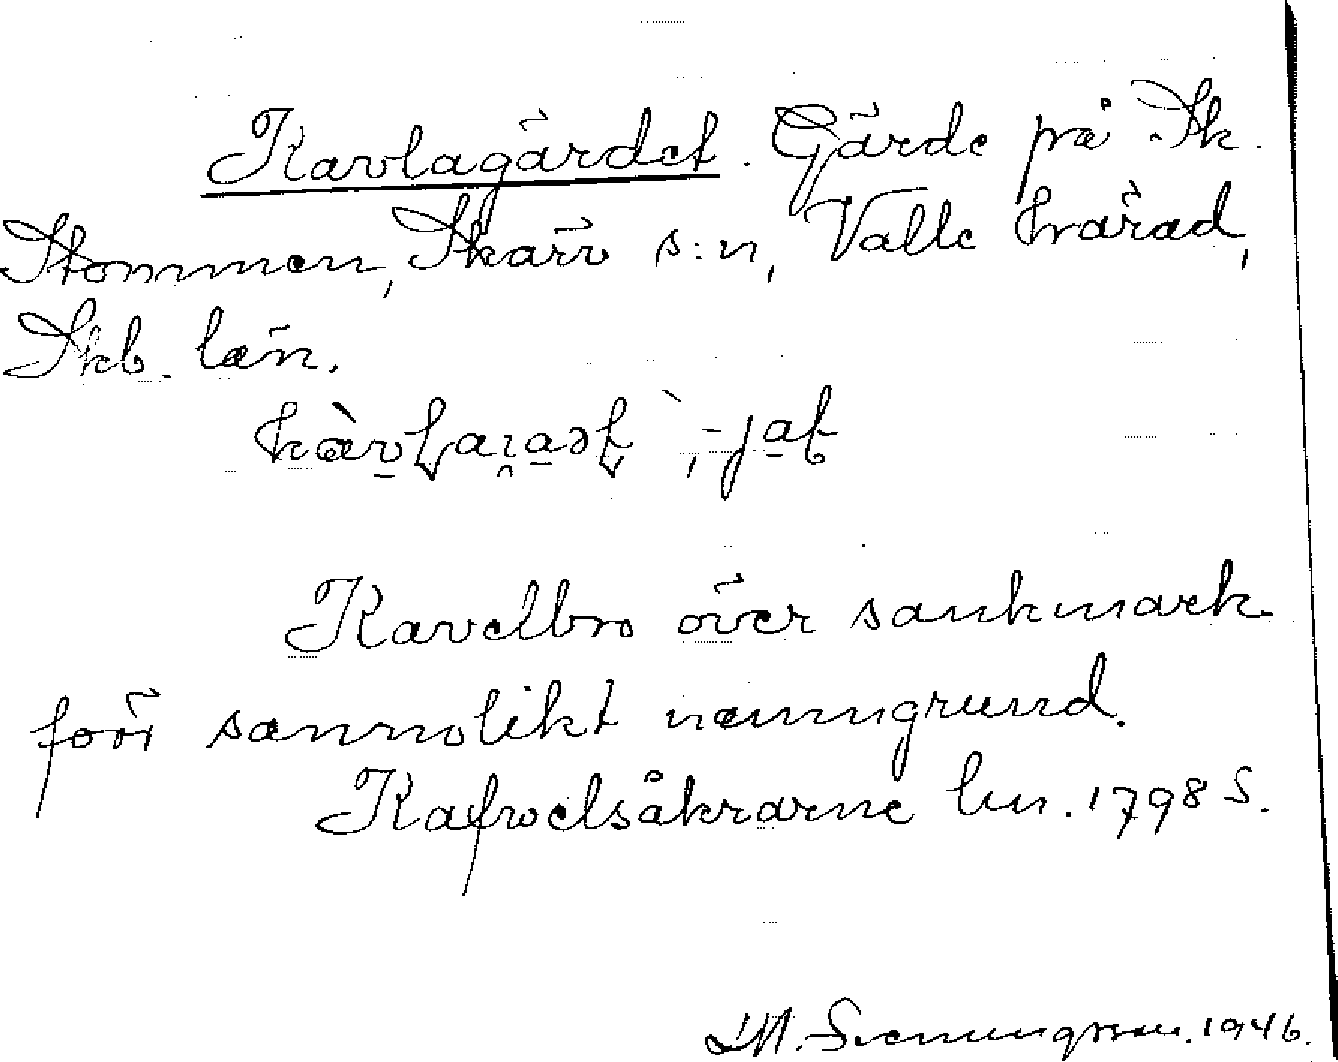 Kavlagärdet. Gärde på Sk.
Stommen, Skärv s:n, Valle härad,
Skb. län.
Kavelbro över sankmark
förr sannolikt namngrund.
Kafwelsåkrarne lm. 1798 S.
M. Svenungsson. 1946.